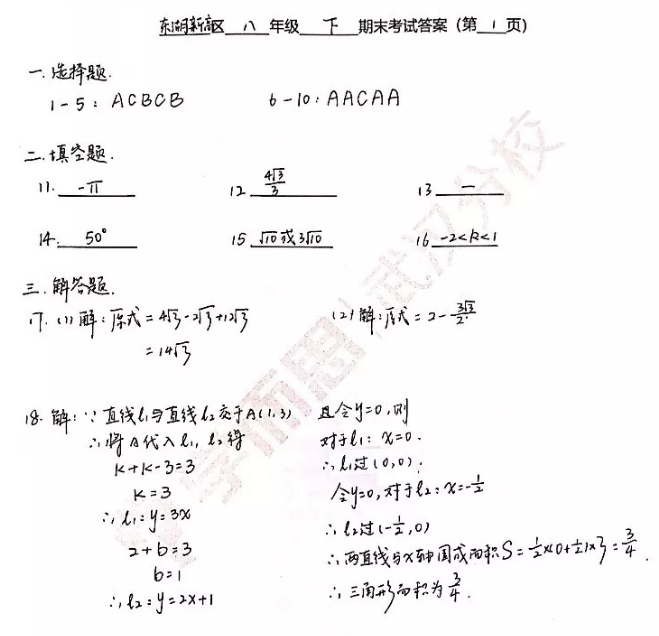 东湖新高区 八 年级 下 期末考试答案（第 1 页）
一.选择题.
1-5: ACBCB 6-10: AACAA
二.填空题.
11. -π 12 4√3/3 13 一
14. 50° 15 √10或3√10 16 -2<k<1
三.解答题.
17. (1)解:原式=4√3-2√3+12√3 (2)解:原式=2-3√3/2.
=14√3
18. 解:∵直线l₁与直线l₂交于A(1,3) 且令y=0,则
∴将A代入l₁, l₂得 对于l₁: x=0.
k+k-3=3 ∴l₁过(0,0).
k=3 令y=0,对于l₂: x=-1/2
∴l₁:y=3x ∴l₂过(-1/2,0)
2+b=3 ∴两直线与x轴围成面积S=1/2×(0+1/2)×3=3/4.
b=1 ∴三角形面积为3/4.
∴l₂:y=2x+1
学而思 武汉分校